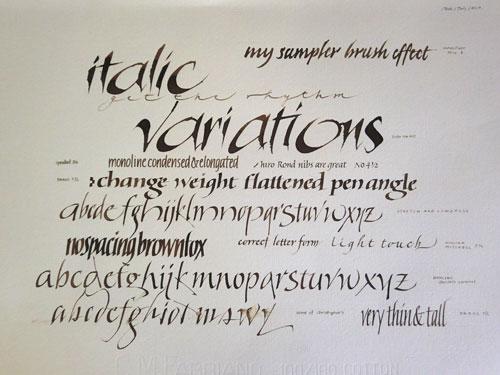 my sampler brush effect
italic
get the rhythm
variations
monoline condensed & elongated hiro Rond nibs are great NO 4½
change weight flattened pen angle
abcdefghijklmnopqrstuvwxyz
nospacingbrownfox correct letter form light touch
abcdefghijkmnopqrstuvwxyz
very thin & tall
C M FABRIANO 100/100 COTTON